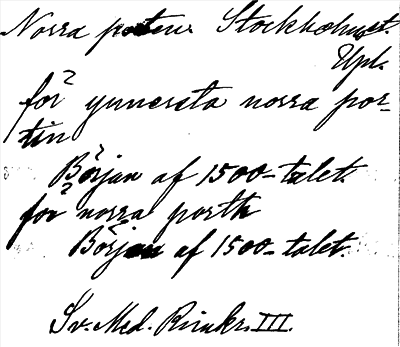 Norra porten. Stockholm st.
Upl.
för ynnersta norra por-
tin
Början af 1500-talet.
för norra porth
Början af 1500-talet.
Sv. Med. Rimkr. III.